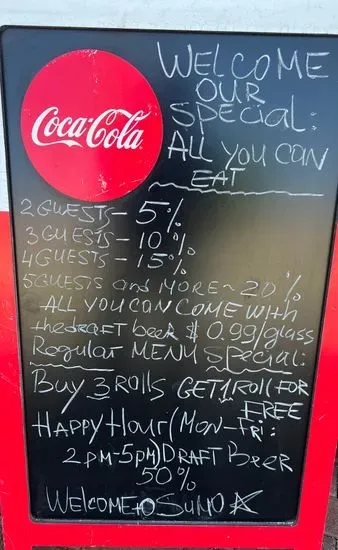 Coca-Cola
WELCOME
OUR
SPECIAL:
ALL YOU CAN
EAT
2 GUESTS - 5%
3 GUESTS - 10%
4 GUESTS - 15%
5 GUESTS and MORE - 20%
ALL YOU CAN COME WITH
the DRAFT beer $ 0.99/glass
Regular MENU Special:
Buy 3 ROLLS GET 1 ROLL FOR
FREE
HAPPY HOUR (MON-FRI:
2 PM-5PM) DRAFT BEER
50%
WELCOME to SUMO